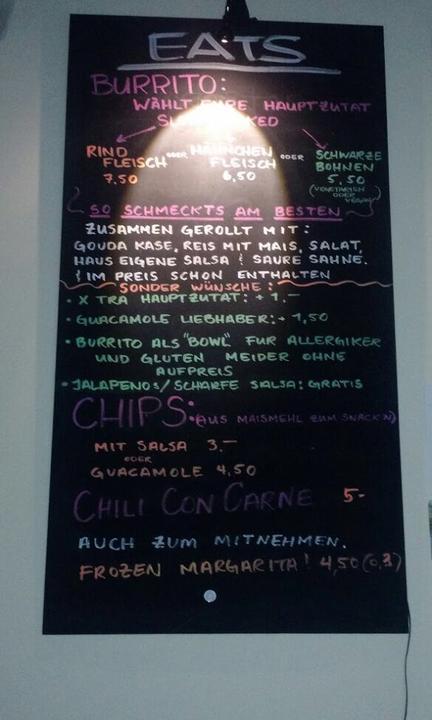 EATS
BURRITO:
WÄHLT EURE HAUPTZUTAT
RIND ODER HÄHNCHEN ODER SCHWARZE
FLEISCH FLEISCH BOHNEN
7,50 6,50 5,50
(VEGETARISCH
ODER
VEGAN)
SO SCHMECKTS AM BESTEN
ZUSAMMEN GEROLLT MIT:
GOUDA KÄSE, REIS MIT MAIS, SALAT,
HAUS EIGENE SALSA & SAURE SAHNE.
& IM PREIS SCHON ENTHALTEN
SONDER WÜNSCHE:
• X TRA HAUPTZUTAT: + 1.-
• GUACAMOLE LIEBHABER: + 1,50
• BURRITO ALS "BOWL" FÜR ALLERGIKER
UND GLUTEN MEIDER OHNE
AUFPREIS
• JALAPENOS/SCHARFE SALSA: GRATIS
CHIPS: (AUS MAISMEHL ZUM SNACK'N)
MIT SALSA 3.-
ODER
GUACAMOLE 4,50
CHILI CON CARNE 5-
AUCH ZUM MITNEHMEN.
FROZEN MARGARITA! 4,50 (0,3)